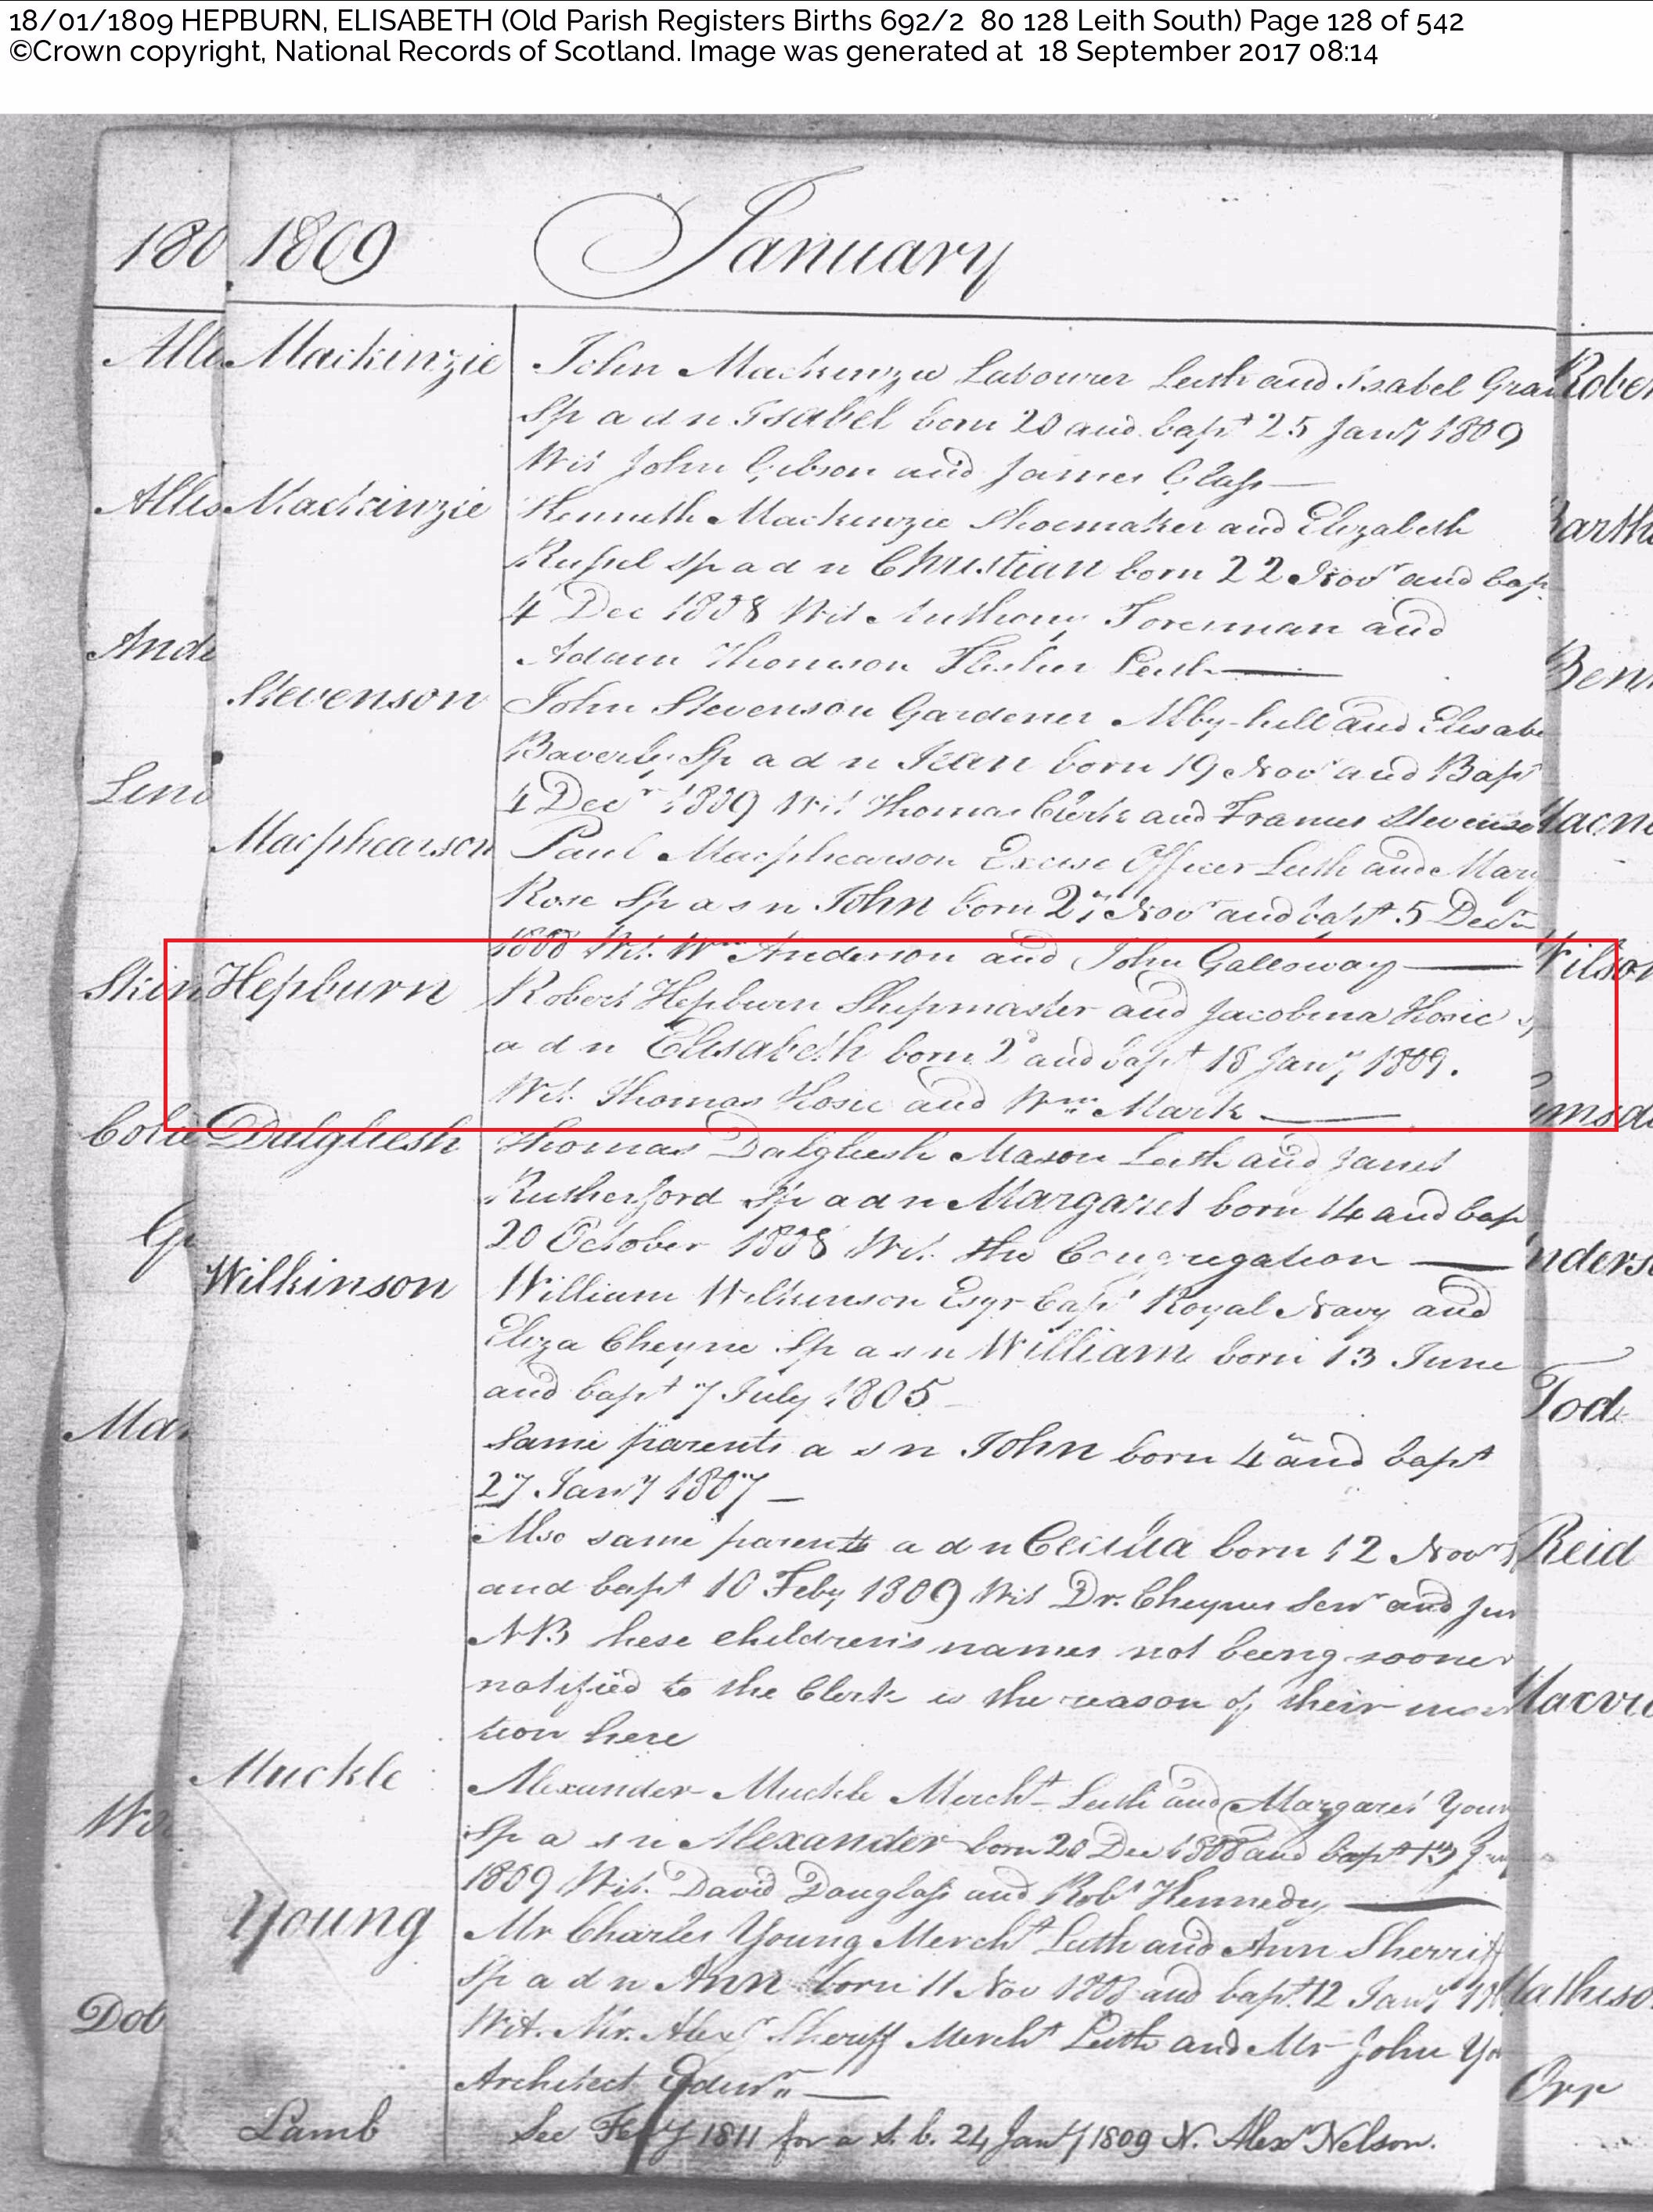 18/01/1809 HEPBURN, ELISABETH (Old Parish Registers Births 692/2 80 128 Leith South) Page 128 of 542
©Crown copyright, National Records of Scotland. Image was generated at 18 September 2017 08:14
180 1809 January
Alle Mackinzie John Mackenzie Labourer Leith and Isabel Gra Rober
Sp a d n Isabel born 20 and bapt 25 Jany 1809
Wit John Gibson and James Glass
Alles Mackinzie Kenneth Mackenzie Shoemaker and Elizabeth Barth
Russel sp a d n Christian born 22 Novr and bap
4 Dec 1808 Wit Anthony Foreman and
Ande Adam Thomson Flesher Leith Benn
Stevenson John Stevenson Gardener Abby-hill and Elisabe
Baverly Sp a d n Jean born 19 Novr and Bapt
Lend 4 Decr 1809 Wit Thomas Clerk and Frances Stevenso Macn
Macphearson Paul Macphearson Excise Officer Leith and Mary
Rose Sp a s n John born 27 Novr and bapt 5 Decr
1808 Wit. Wm Anderson and John Galloway Wilson
Skin Hepburn Robert Hepburn Shipmaster and Jacobina Hosie s
a d n Elisabeth born 2d and bapt 18 Jany 1809.
Wit. Thomas Hosie and Wm Mark umsd
Colu Dalgliesh Thomas Dalgliesh Mason Leith and Janet
Rutherford Sp a d n Margaret born 14 and bap
G 20 October 1808 Wit. the Congregation nders
Wilkinson William Wilkinson Esqr Capt Royal Navy and
Eliza Cheyne Sp a s n William born 13 June
and bapt 7 July 1805 Tod
Ma Same parents a s n John born 4 and bapt
27 Jany 1807
Also same parents a d n Cecilia born 12 Novr Reid
and bapt 10 Feby 1809 Wit Dr. Cheynes Senr and Jun
NB these children's names not being sooner
notified to the Clerk is the reason of their inser Macvi
tion here
Muckle Alexander Muckle Mercht Leith and Margaret Youn
Wi Sp a s n Alexander born 20 Dec 1808 and bapt 13 Jany
1809 Wit. David Douglass and Robt Kennedy
Young Mr Charles Young Mercht Leith and Ann Sherriff
Sp a d n Ann born 11 Nov 1808 and bapt 12 Jany 18 Mathiso
Dob Wit. Mr. Alexr Sheriff Mercht Leith and Mr John Yo
Architect Edinr Orr
Lamb See Feby 1811 for a s. b. 24 Jany 1809 N. Alexr Nelson.